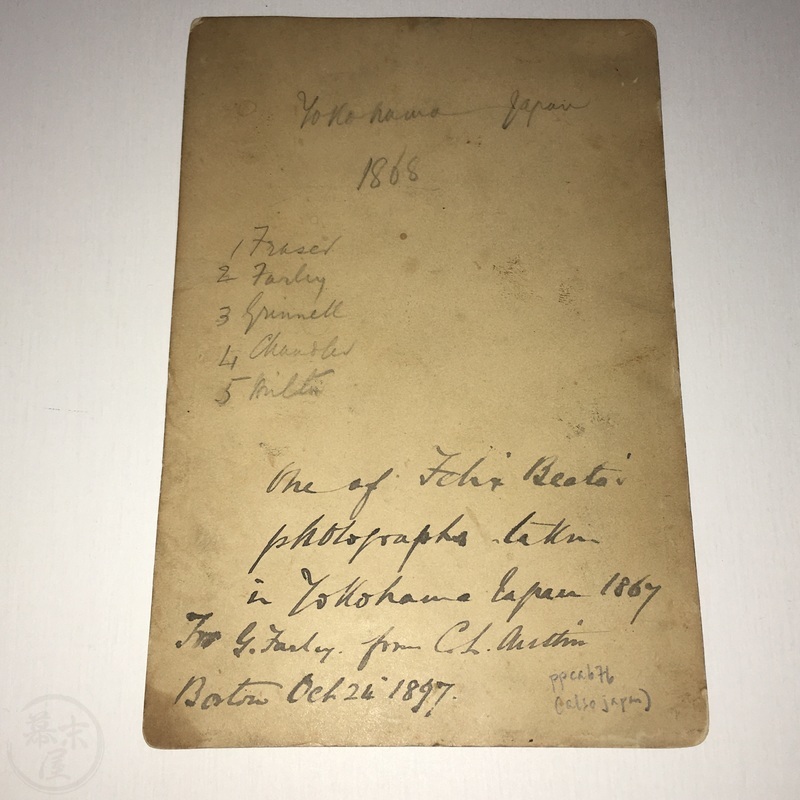 Yokohama Japan
1868
1 Fraser
2 Farley
3 Grinnell
4 Chandler
5
One of Felix Beato's
photographs taken
in Yokohama Japan 1867
For G. Farley. from C.L. Austin
Boston Oct. 24 1897.
ppca676
(also japan)
幕末屋